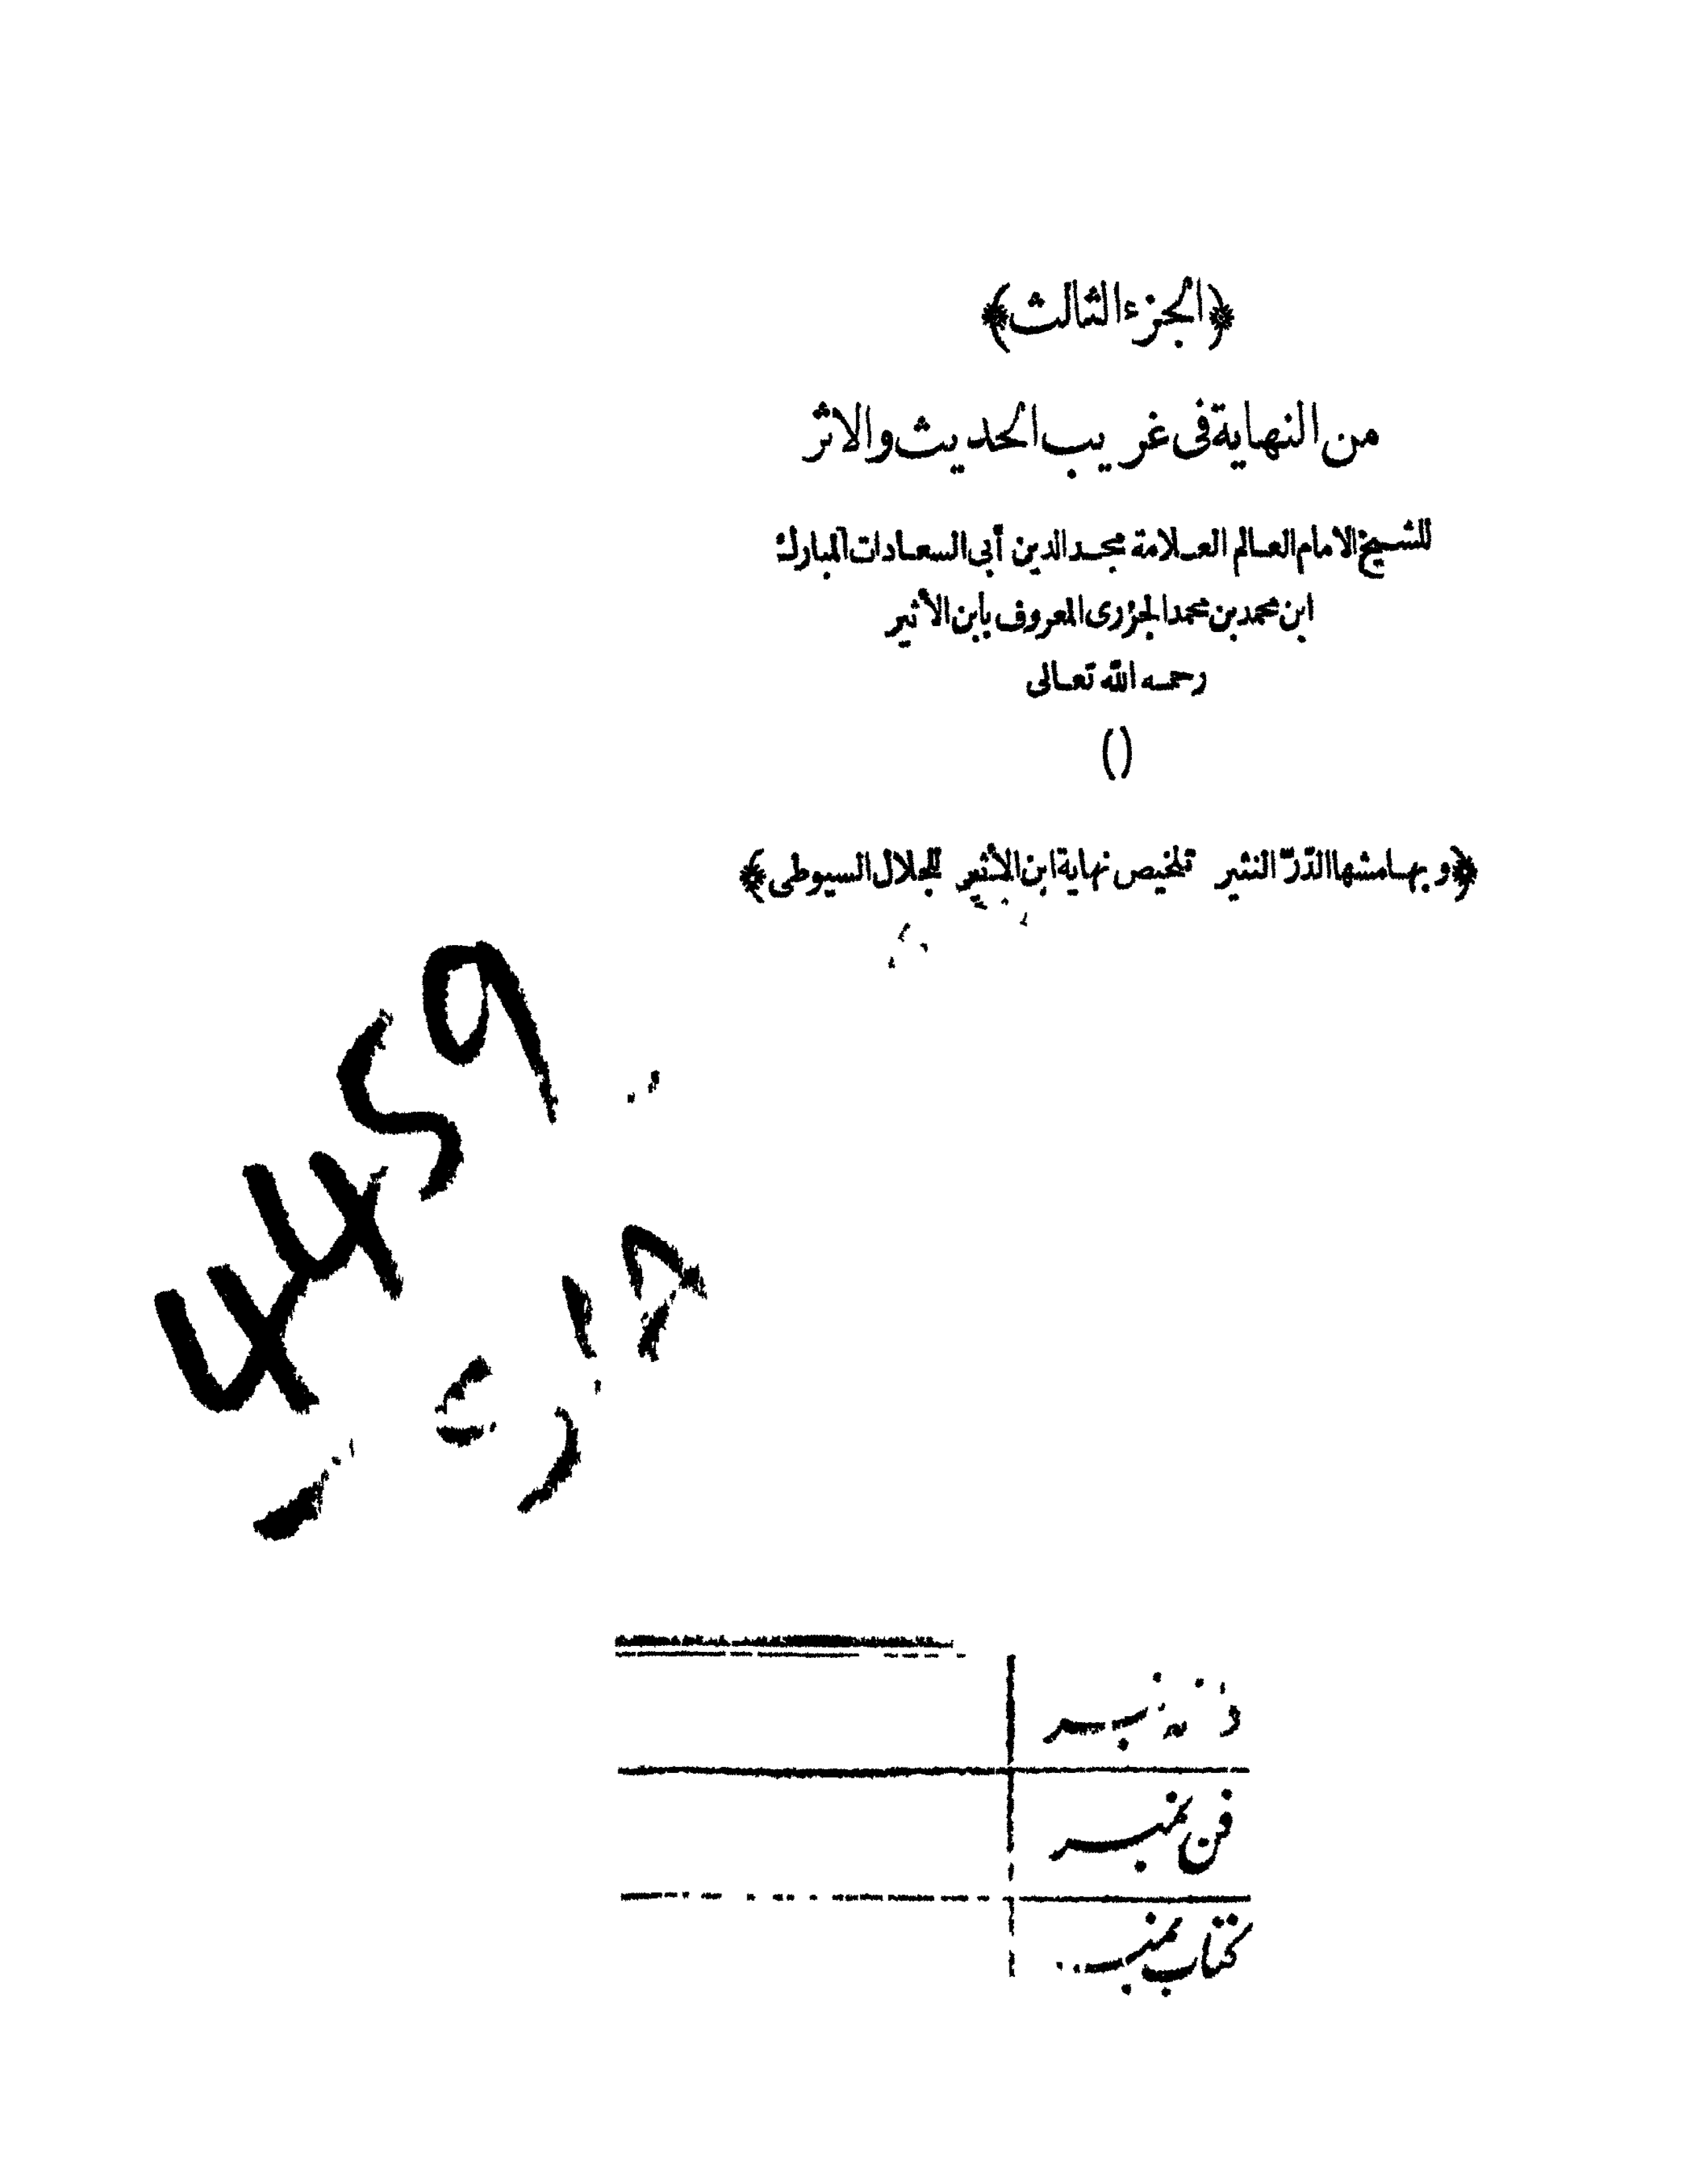 ﴿الجزء الثالث﴾
من النهاية فى غريب الحديث والاثر
للشيخ الامام العالم العلامة مجد الدين أبى السعادات المبارك
ابن محمد بن محمد الجزرى المعروف بابن الأثير
رحمه الله تعالى
()
﴿وبهامشها الدّرّ النثير تلخيص نهاية ابن الأثير للجلال السيوطى﴾
4459
فن نمبر
كتاب نمبر